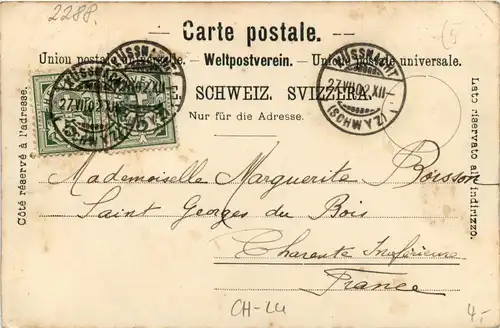 2288.
(5
Carte postale.
Union postale universelle. – Weltpostverein. – Unione postale universale.
SCHWEIZ. SVIZZERA.
Nur für die Adresse.
Côté réservé à l'adresse.
Lato riservato all'indirizzo.
KÜSSNACHT
27.VII.02.XII
(SCHWYZ)
KÜSSNACHT
27.VII.02.XII
(SCHWYZ)
Mademoiselle Marguerite Boisson
Saint Georges du Bois
Charente Inférieure
France
CH-LU
4,-